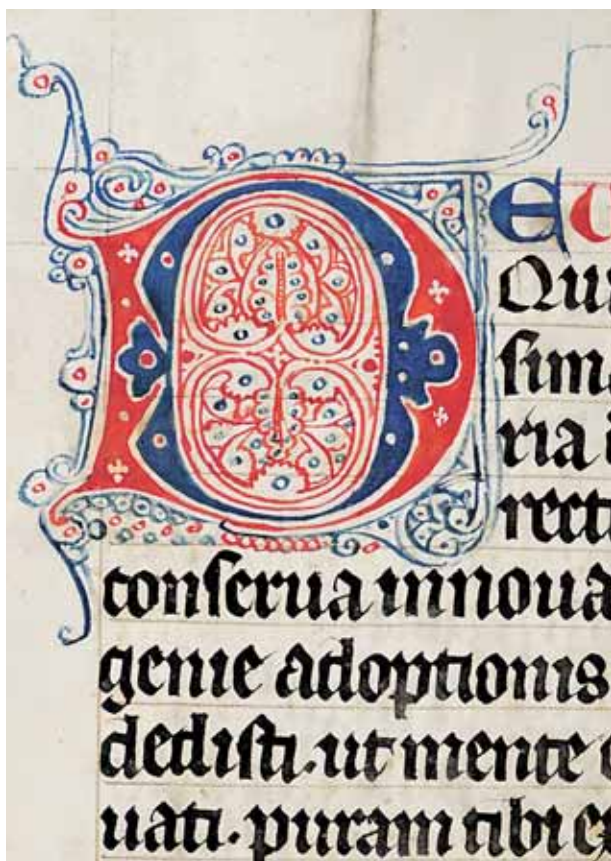 DEU
Qui
sima
ria
recti
conserua innoua
genie adoptionis
dedisti. ut mente
uati. puram tibi ex